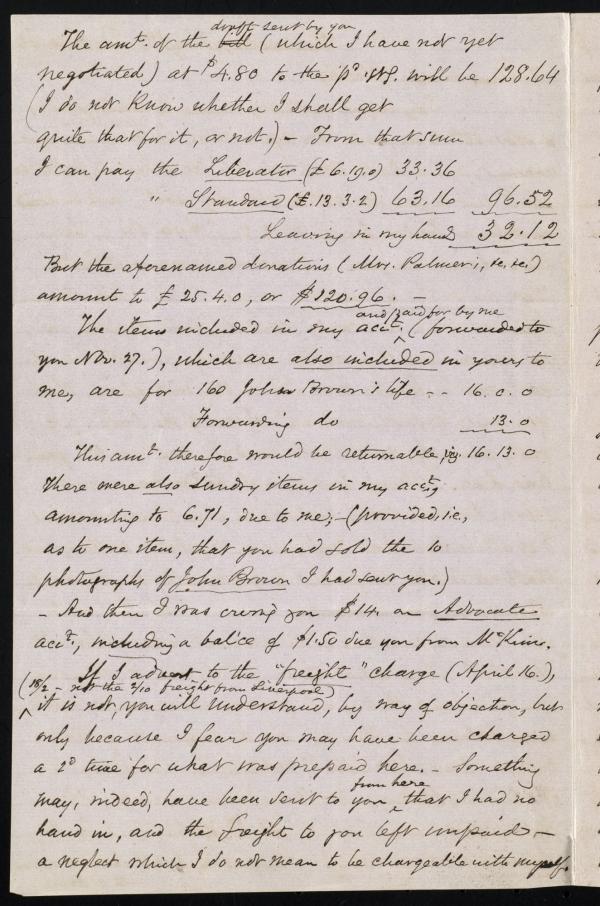 draft sent by you
The amt. of the bill (which I have not yet
negotiated) at $4.80 to the pd. stg. will be 128.64
(I do not know whether I shall get
quite that for it, or not.) – From that sum
I can pay the Liberator (£6.19.0) 33.36
" Standard (£.13.3.2) 63.16 96.52
Leaving in my hands 32.12
But the aforenamed donations (Mrs. Palmer's, &c. &c.)
amount to £25.4.0, or $120.96. –
and paid for by me
The items included in my acct. (forwarded to
you Nov. 27.), which are also included in yours to
me, are for 160 John Brown's life – – 16. 0. 0
Forwarding do 13. 0
This amt. therefore would be returnable, viz. 16. 13. 0
There were also sundry items in my acct.,
amounting to 6.71, due to me; – (provided, i.e.,
as to one item, that you had sold the 10
photographs of John Brown I had sent you.)
– And then I was owing you $14. on Advocate
acct., including a bal'ce of $1.50 due you from McKim.
If I advert to the "freight" charge (April 16.),
(18/2 – not the 2/10 freight from Liverpool)
it is not, you will understand, by way of objection, but
only because I fear you may have been charged
a 2d time for what was prepaid here. – Something
from here
may, indeed, have been sent to you, that I had no
hand in, and the freight to you left unpaid –
a neglect which I do not mean to be chargeable with myself.